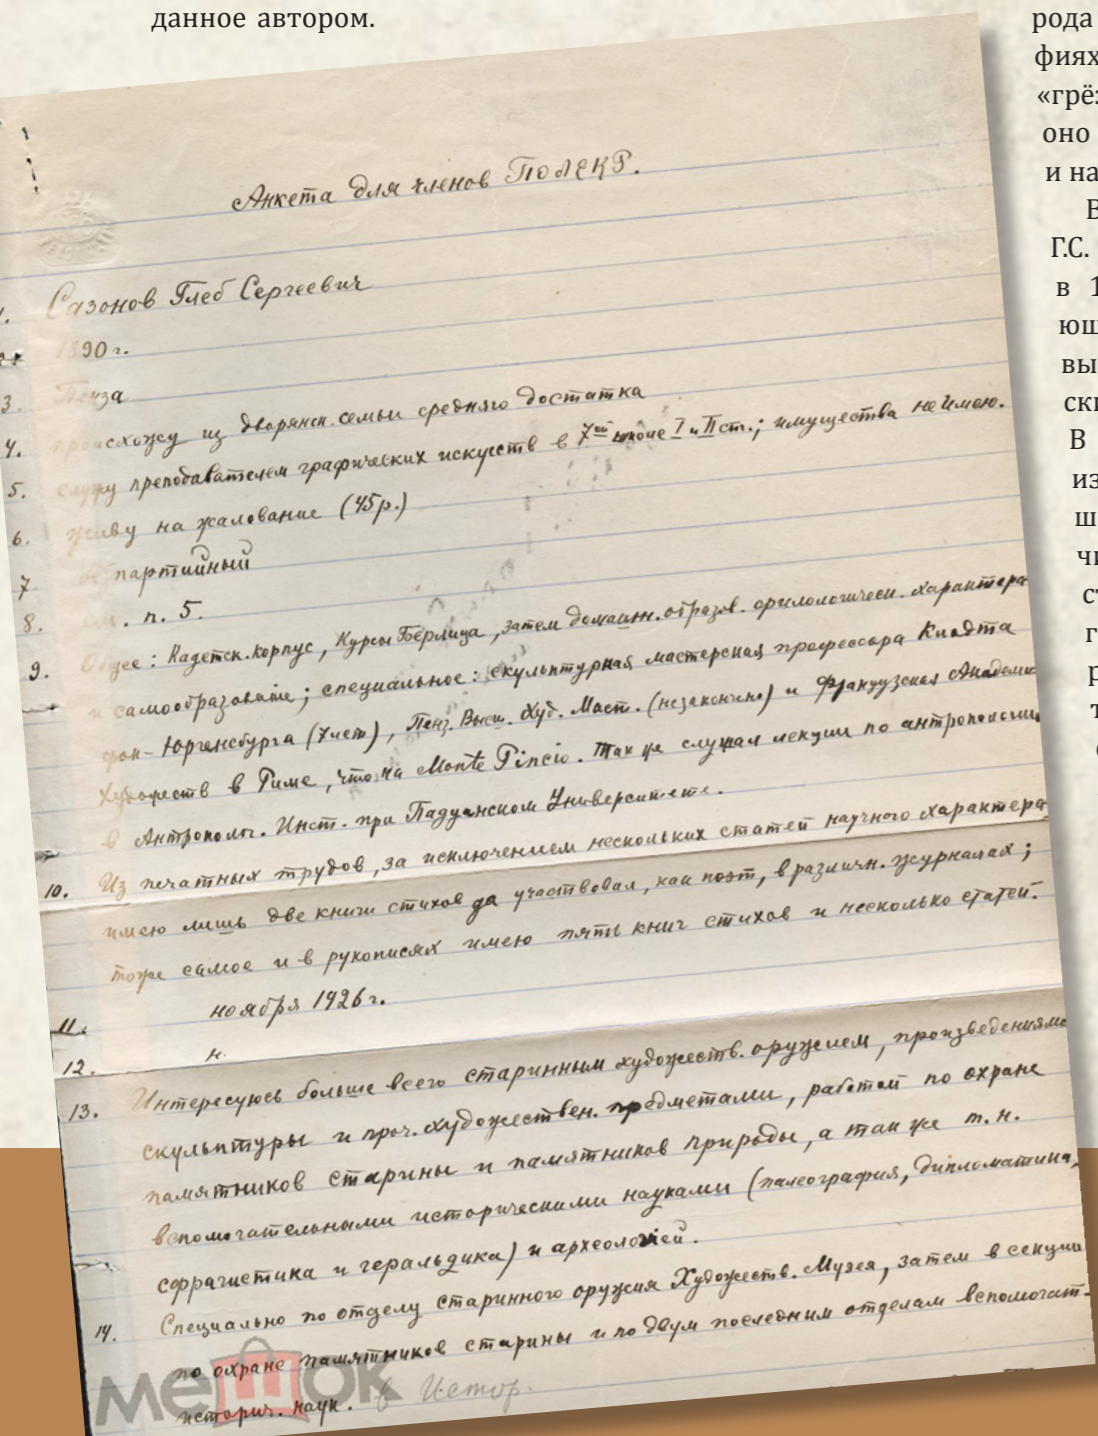 данное автором.
Анкета для членов ПОЛЕКР.
1. Сазонов Глеб Сергеевич
1890 г.
3. Пенза
4. происхожу из дворянск. семьи среднего достатка
5. служу преподавателем графических искусств в 7ой школе I и II ст.; имущества не имею.
6. живу на жалование (45р.)
7 беспартийный
8. п. 5.
9. Общее: Кадетск. корпус, Курсы Берлица, затем домашн. образов. филологическ. характера
и самообразование; специальное: скульптурная мастерская профессора Клодта
фон-Юргенсбурга (7 лет), Пенз. Высш. Худ. Маст. (незакончено) и Французская Академия
Художеств в Риме, что на Monte Pincio. Так же слушал лекции по антропологии
в Антрополог. Инст. при Падуанском Университете.
10. Из печатных трудов, за исключением нескольких статей научного характера
имею лишь две книги стихов да участвовал, как поэт, в различн. журналах;
тоже самое и в рукописях имею пять книг стихов и несколько статей.
11. ноября 1926 г.
12. н.
13. Интересуюсь больше всего старинным художеств. оружием, произведениями
скульптуры и проч. художествен. предметами, работой по охране
памятников старины и памятников природы, а так же т. н.
вспомогательными историческими науками (палеография, дипломатика,
сфрагистика и геральдика) и археологией.
14. Специально по отделу старинного оружия Художеств. Музея, затем в секции
по охране памятников старины и по двум последним отделам вспомогат.
историч. наук. в Истор.
мешок
рода
фиях
«грёз
оно
и на
В
Г.С.
в 1
ющ
вы
ски
В
из
ш
чи
ст
г
р
т